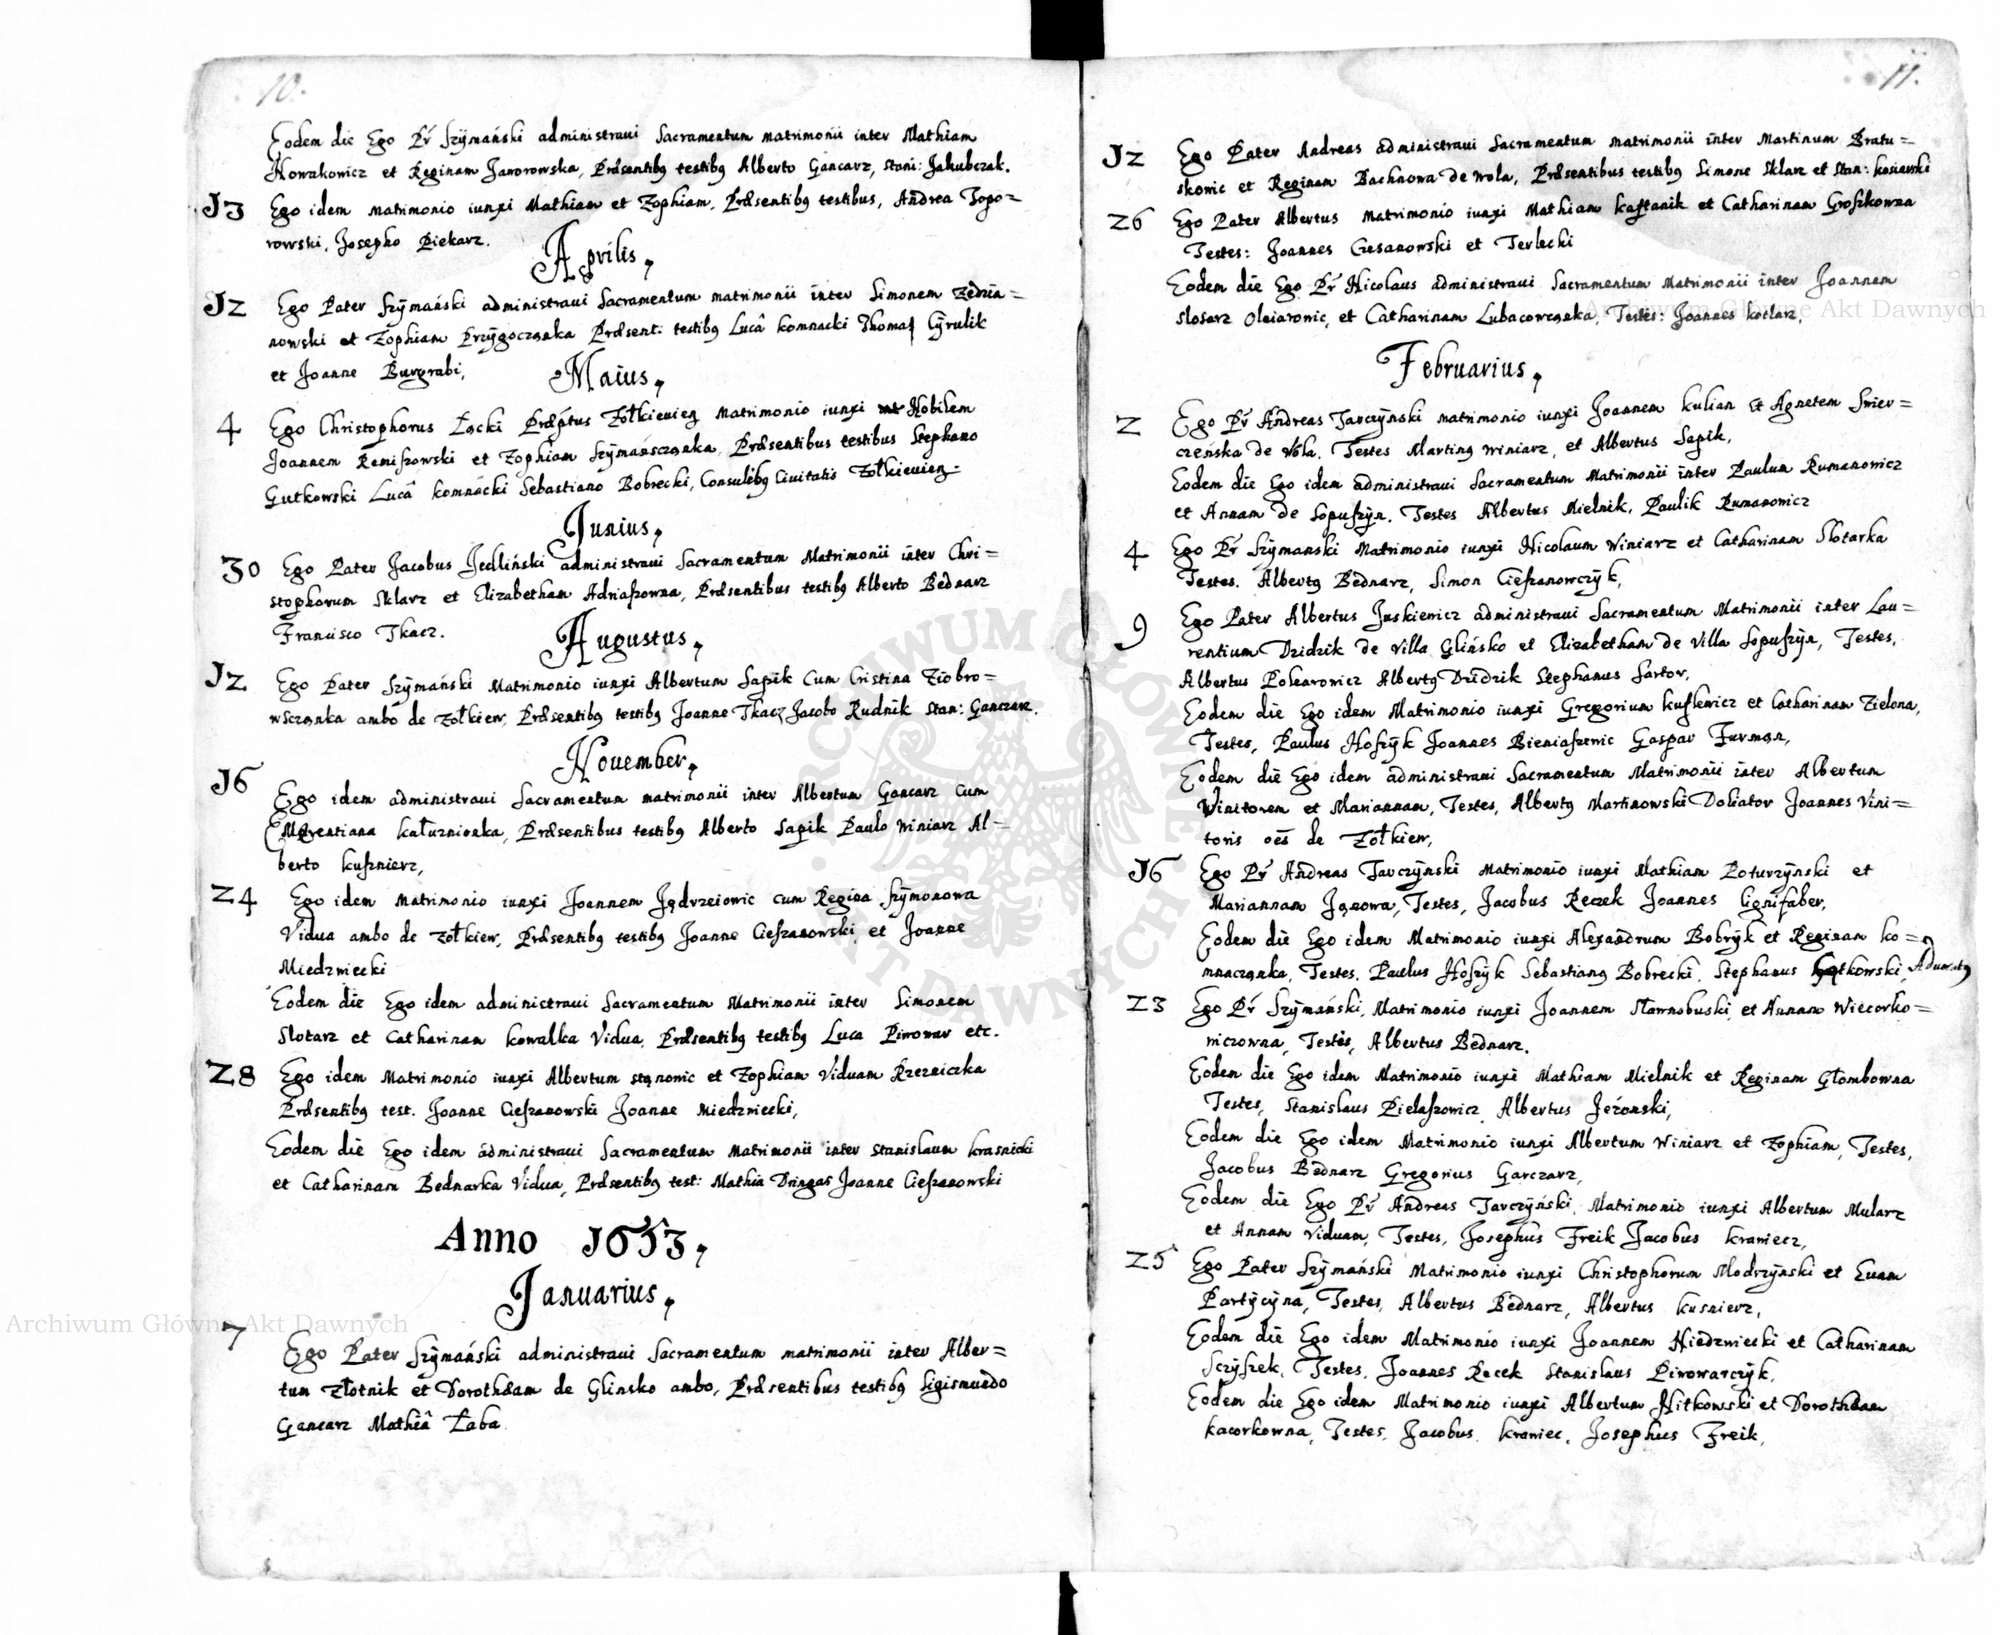 10.
Eodem die Ego Pr Szÿmański administraui Sacramentum matrimonii inter Mathiam
Nowakowicz et Reginam Jaworowska, Præsentibq testibq Alberto Gancarz, Stani: Jakubczak.
J3 Ego idem matrimonio iunxi Mathiam et Zophiam, Præsentibq testibus, Andrea Topo=
rowski, Josepho Piekarz.
Aprilis,
Jz Ego Pater Szÿmański administraui Sacramentum matrimonii inter Simonem
nowski et Zophiam Przÿgocząnka Præsent: testibq Lucâ komnacki Thomas Cÿrulik
et Joanne Burgrabi,
Maius,
4 Ego Christophorus Łącki Præptus Żołkieuien matrimonio iunxi Nobilem
Joannem Remiszowski et Zophiam Szÿmańscząnka, Præsentibus testibus Stephano
Gutkowski Lucâ komnacki Sebastiano Bobrecki, Consulibq Ciuitatis Żołkieuien:
Junius,
30 Ego Pater Jacobus Jedliński administraui Sacramentum Matrimonii inter Chri=
stophorum Sklarz et Elizabetham Adriaszowna, Præsentibus testibq Alberto Bednarz
Francisco Tkacz.
Augustus,
Jz Ego Pater Szÿmański Matrimonio iunxi Albertum Sapik Cum Cristina Ziobro=
wscząnka ambo de Żołkiew, Præsentibq testibq Joanne Tkacz Jacobo Rudnik Stan: Gancarz.
Nouember,
J6 Ego idem administraui Sacramentum matrimonii inter Albertum Gancarz cum
kałuznionka, Præsentibus testibq Alberto Sapik Paulo Winiarz Al=
berto kusznierz,
z4 Ego idem Matrimonio iunxi Joannem Jędrzeiowic cum Regina Szÿmonowa
Vidua ambo de Żołkiew, Præsentibq testibq Joanne Cieszanowski et Joanne
Miedzwiecki
Eodem die Ego idem administraui Sacramentum Matrimonii inter Simonem
Slotarz et Catharinam kowalka Vidua, Præsentibq testibq Luca Piwowar etc.
z8 Ego idem Matrimonio iunxi Albertum Stąnowic et Zophiam Viduam Rzezniczka
Præsentibq test. Joanne Cieszanowski Joanne Miedzwiecki,
Eodem die Ego idem administraui Sacramentum Matrimonii inter Stanislaum krasnicki
et Catharinam Bednarka Vidua, Præsentibq test: Mathia Dringas Joanne Cieszanowski
Anno J653,
Januarius,
7 Ego Pater Szÿmański administraui Sacramentum matrimonii inter Alber=
tum Złotnik et Dorotheam de Glinsko ambo, Præsentibus testibq Sigismundo
Gancarz Mathiâ Żaba
11.
Jz Ego Pater Andreas administraui Sacramentum matrimonii inter Martinum Bratu=
skowic et Reginam Bachnowa de Wola, Præsentibus testibq Simone Sklarz et Stan: kosiewski
z6 Ego Pater Albertus Matrimonio iunxi Mathiam kasztanik et Catharinam Groszkowna
Testes: Joannes Ciesanowski et Terlecki
Eodem die Ego Pr Nicolaus administraui Sacramentum Matrimonii inter Joannem
Slosarz Oleiarowic, et Catharinam Lubacowcząnka, Testes: Joannes kotlarz,
Februarius,
z Ego Pr Andreas Tarczÿnski matrimonio iunxi Joannem kulian Et Agnetem Swier=
czeńska de Wola, Testes Martinq Winiarz, et Albertus Sapik,
Eodem die Ego idem administraui Sacramentum Matrimonii inter Paulum Rumanowicz
et Annam de Sopuszÿn. Testes Albertus Mielnik, Paulik Rumanowicz
4 Ego Pr Szÿmanski Matrimonio iunxi Nicolaum Winiarz et Catharinam Slotarka
Testes. Albertq Bednarz, Simon Cieszanowczÿk,
9 Ego Pater Albertus Juskiewicz administraui Sacramentum Matrimonii inter Lau=
rentium Dzidzik de Villa Glińsko et Elizabetham de Villa Sopuszÿn, Testes,
Albertus Albertq Dzidzik Stephanus Sartor,
Eodem die Ego idem Matrimonio iunxi Gregorium kuszlewicz et Catharinam Zielona,
Testes, Paulus Hoszÿk Joannes Bieniaszewic Gaspar Furman,
Eodem die Ego idem administraui Sacramentum Matrimonii inter Albertum
Winitorem et Mariannam, Testes, Albertq Martinowski Doliator Joannes Vini=
toris oēs de Żołkiew,
J6 Ego Pr Andreas Tarczÿnski Matrimonio iunxi Mathiam Poturzÿnski et
Mariannam Jąnowa, Testes, Jacobus Reczek Joannes Lignifaber,
Eodem die Ego idem Matrimonio iunxi Alexandrum Bobrÿk et Reginam ko=
mnacząnka, Testes, Paulus Hoszÿk Sebastianq Bobrecki, Stephanus Gutkowski,
z3 Ego Pr Szÿmański, Matrimonio iunxi Joannem Sławnobuski, et Annam Wiecorko=
wiczowna, Testes, Albertus Bednarz.
Eodem die Ego idem Matrimonio iunxi Mathiam Mielnik et Reginam Głombowna
Testes, Stanislaus Pielaszowicz Albertus Jeżowski,
Eodem die Ego idem Matrimonio iunxi Albertum Winiarz et Zophiam, Testes,
Jacobus Bednarz Gregorius Garczarz,
Eodem die Ego Pr Andreas Tarczÿński, Matrimonio iunxi Albertum Mularz
et Annam Viduam, Testes, Josephus Freik Jacobus krawiecz,
z5 Ego Pater Szÿmański Matrimonio iunxi Christophorum Modrzÿnski et Euam
Partÿcÿna, Testes, Albertus Bednarz, Albertus kusnierz,
Eodem die Ego idem Matrimonio iunxi Joannem Niedzwiecki et Catharinam
Sczÿszek, Testes, Joannes Racek Stanislaus Piwowarczÿk,
Eodem die Ego idem Matrimonio iunxi Albertum Nitkowski et Dorotheam
kacorkowna, Testes, Jacobus krawiec, Josephus Freik,
Archiwum Główne Akt Dawnych
Archiwum Główne Akt Dawnych
ARCHIWUM GŁÓWNE AKT DAWNYCH